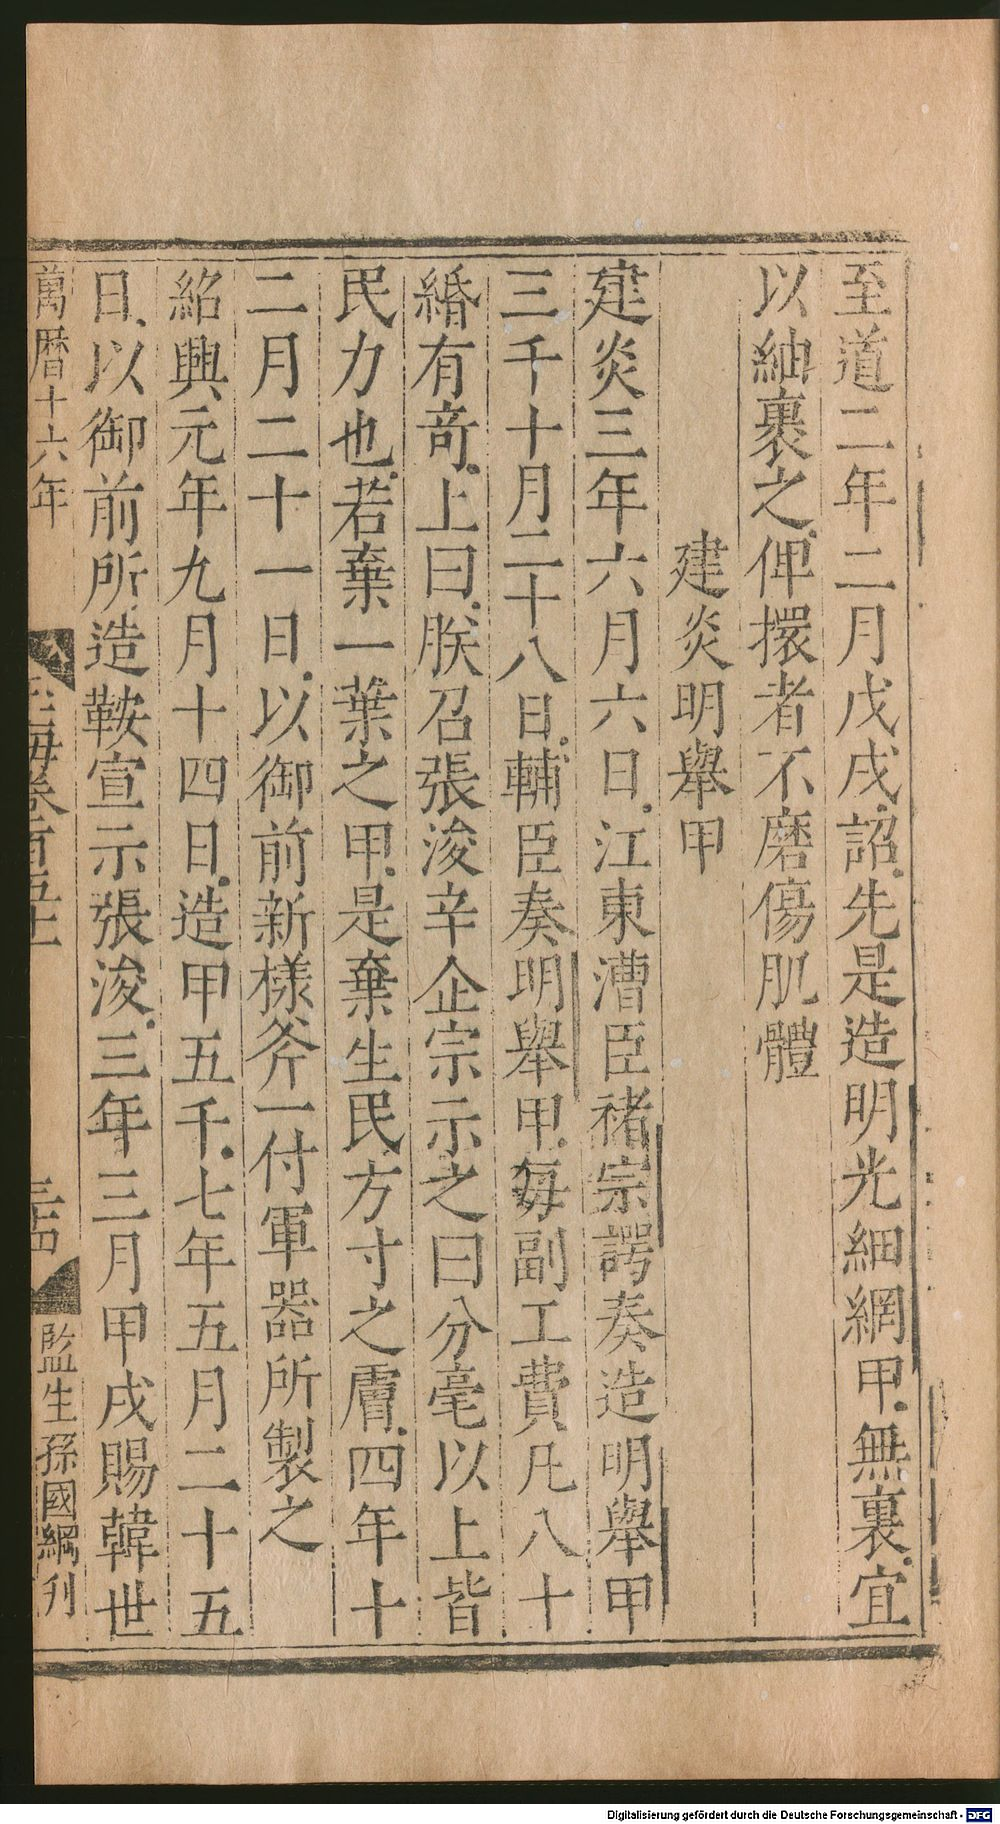 至道二年二月戊戌詔先是造明光細網甲無裏宜
以紬裏之俾擐者不磨傷肌體
建炎明舉甲
建炎三年六月六日江東漕臣褚宗諤奏造明舉甲
三千十月二十八日輔臣奏明舉甲每副工費凡八十
緡有奇上曰朕召張浚辛企宗示之曰分毫以上皆
民力也若棄一葉之甲是棄生民方寸之膚四年十
二月二十一日以御前新樣斧一付軍器所製之
紹興元年九月十四日造甲五千七年五月二十五
日以御前所造鞍宣示張浚三年三月甲戌賜韓世
萬曆十六年
玉海卷百五十一
三十四
監生孫國綱刊
Digitalisierung gefördert durch die Deutsche Forschungsgemeinschaft - DFG